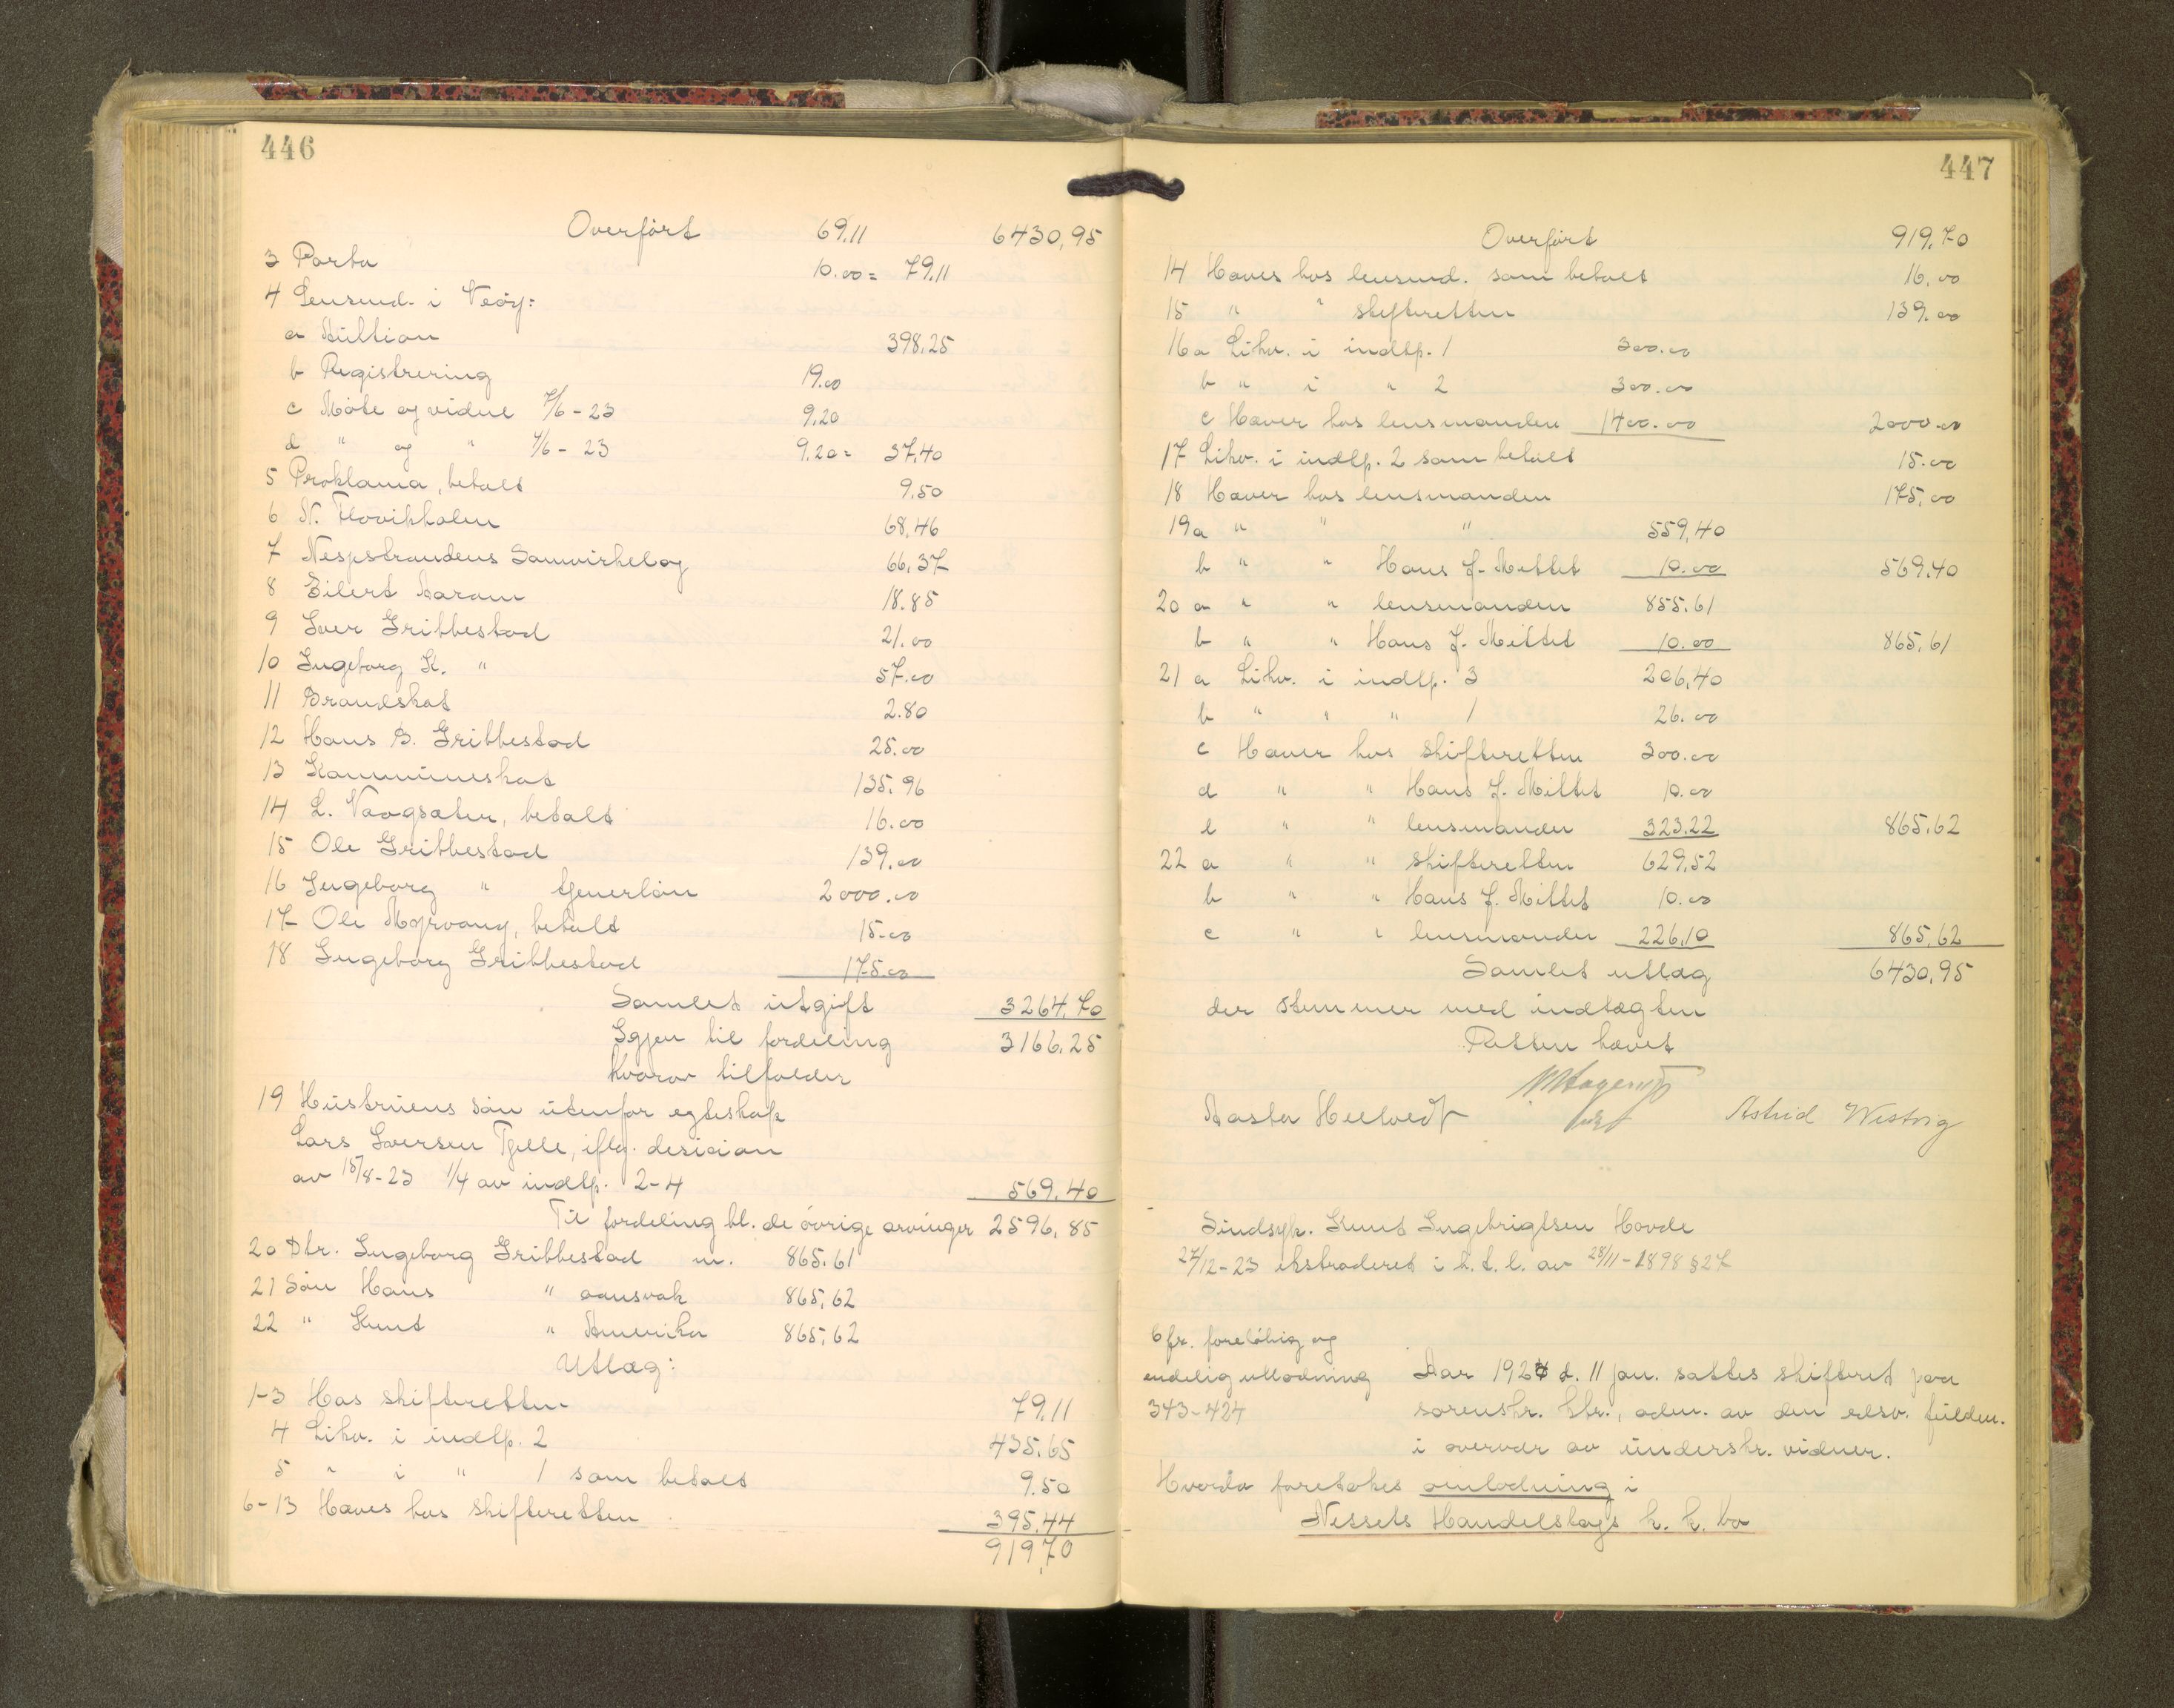 446
Overført 69.11 6430,95
3 Porto 10.00 = 79.11
4 Lensmd. i Veøy:
a Auktion 398.25
b Registrering 19.00
c Møte og vidne 7/6-23 9.20
d " og " 4/6-23 9.20 = 37.40
5 Proklama, betalt 9.50
6 N. Flovikholm 68.46
7 Nesjestrandens Samvirkelag 66,37
8 Eilert Aaram 18.85
9 Iver Gribbestad 21.00
10 Ingeborg K. " 57.00
11 Brandskat 2.80
12 Hans B. Gribbestad 25.00
13 Kommuneskat 135.96
14 L. Vaagsæter, betalt 16.00
15 Ole Gribbestad 139.00
16 Ingeborg " tjenerløn 2000.00
17 Ole Mjrvang, betalt 15.00
18 Ingeborg Gribbestad 175.00
Samlet utgift 3264,70
Igjen til fordeling 3166.25
hvorav tilfalder
19 Hustruens søn utenfor egteskap
Lars Iversen Tjelle, iflg. desision
av 15/8-23 1/4 av indtp. 2-4 569.40
Til fordeling bl. de øvrige arvinger 2596,85
20 Dtr. Ingeborg Gribbestad m. 865.61
21 Søn Hans " aansvak 865,62
22 " Knut " Amerika 865,62
Utlæg:
1-3 Hos skifteretten 79.11
4 Likv. i indtp. 2 435.65
5 " i " 1 som betalt 9.50
6-13 Haves hos skifteretten 395,44
919,70
447
Overført 919.70
14 Haves hos lensmd. som betalt 16.00
15 " " skifteretten 139.00
16 a Likv. i indtp. 1 300.00
b " i " 2 300.00
c Haver hos lensmanden 1400.00 2000.00
17 Likv. i indtp. 2 som betalt 15.00
18 Haver hos lensmanden 175,00
19 a " " " 559,40
b " " Hans J. Mittet 10.00 569.40
20 a " " lensmanden 855.61
b " " Hans J. Mittet 10.00 865,61
21 a Likv. i indtp. 3 206,40
b " " " 1 26.00
c Haver hos skifteretten 300.00
d " " Hans J. Mittet 10.00
e " " lensmanden 323.22 865,62
22 a " " skifteretten 629,52
b " " Hans J. Mittet 10.00
c " " lensmanden 226,10 865,62
Samlet utlæg 6430,95
der stemmer med indtægten
Retten hævet
Hagerup
Aasta Astrid
Sindsyk. Knut Ingebrigtsen Hovde
27/12-23 ekstraderet i h. t. l. av 28/11-1898 § 27
Cfr. foreløbig og
endelig utlodning Aar 1924 d. 11 jan. sattes skifteret paa
343-424 sorenskr. ktr., adm. av den edsv. fuldm.
i overvær av underskr. vidner.
Hvorda foretokes omlodning i
Nessets Handelslags k. k. bo